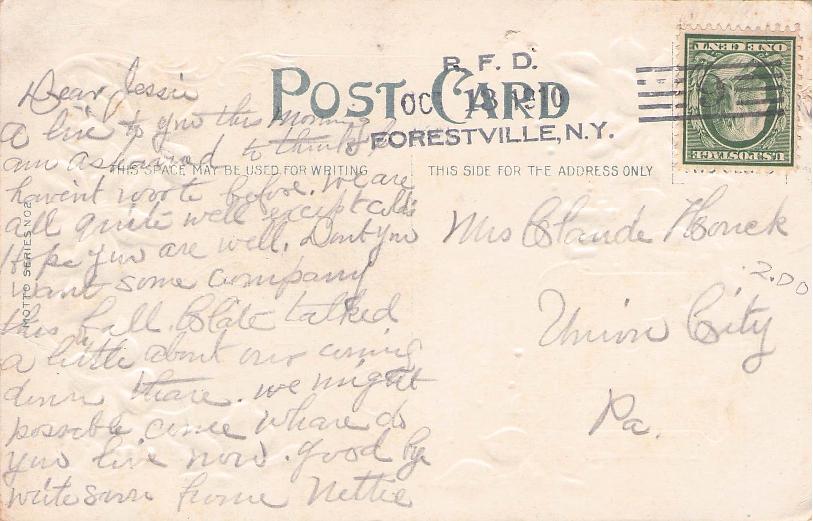 Dear Jessie
a line to you this morning
am ashamed to think I
havent wrote before. We are
all quite well except colds
Hope you are well. Dont you
want some company
this fall. Clate talked
a little about our coming
down thare. we might
possable come whare do
you live now. good bye
write soon from Nettie
MOTTO SERIES NO2
POST CARD
R. F. D.
OC 18 1910
FORESTVILLE, N.Y.
THIS SPACE MAY BE USED FOR WRITING
THIS SIDE FOR THE ADDRESS ONLY
U.S. POSTAGE
ONE CENT
Mrs Claude Houck
Union City
Pa.
2.00